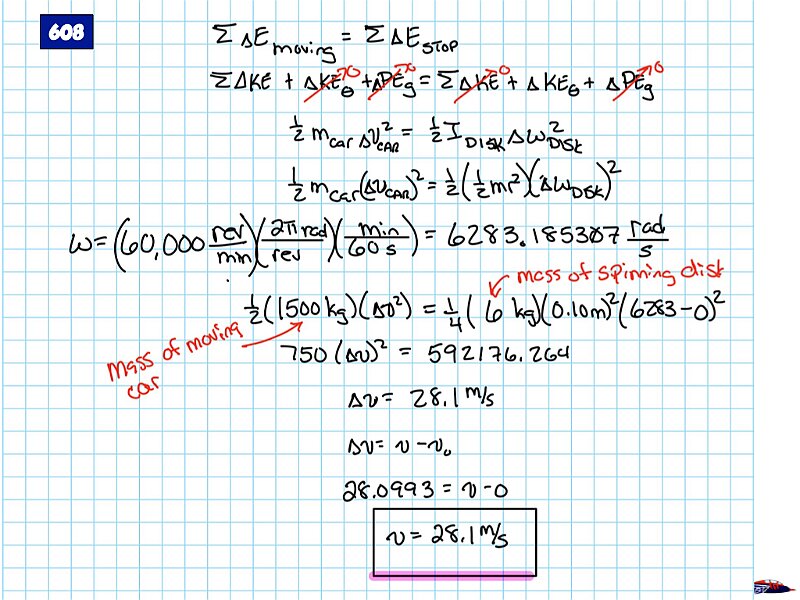 608
Σ ΔE moving = Σ ΔE STOP
ΣΔKE + ΔKE_θ→0 + ΔPE_g→0 = ΣΔKE→0 + ΔKE_θ + ΔPE_g→0
½ m_car Δv²_CAR = ½ I_DISK Δω²_DISK
½ m_car (Δv_CAR)² = ½(½mr²)(Δω_DISK)²
ω = (60,000 rev/min)(2π rad/rev)(min/60 s) = 6283.185307 rad/s
mass of spinning disk
½(1500 kg)(Δv²) = ¼(6 kg)(0.10m)²(6283-0)²
Mass of moving car
750(Δv)² = 592176.264
Δv = 28.1 m/s
Δv = v - v₀
28.0993 = v - 0
v = 28.1 m/s